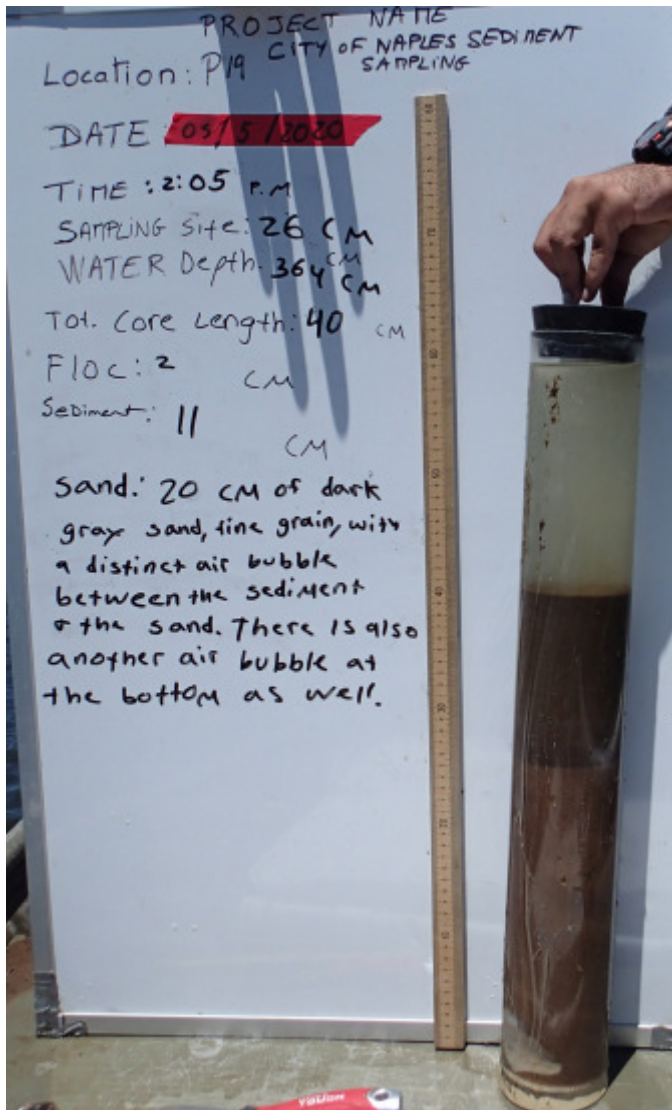 PROJECT NAME
CITY OF NAPLES SEDIMENT
SAMPLING
Location: P19
DATE 05/5/2020
TIME: 2:05 P.M
SAMPLING Site: 26 CM
WATER Depth: 364 CM CM
Tot. Core Length: 40 CM
Floc: 2 CM
Sediment: 11 CM
Sand: 20 CM of dark
gray sand, fine grain, with
a distinct air bubble
between the sediment
& the sand. There is also
another air bubble at
the bottom as well.
60
50
40
30
20
10